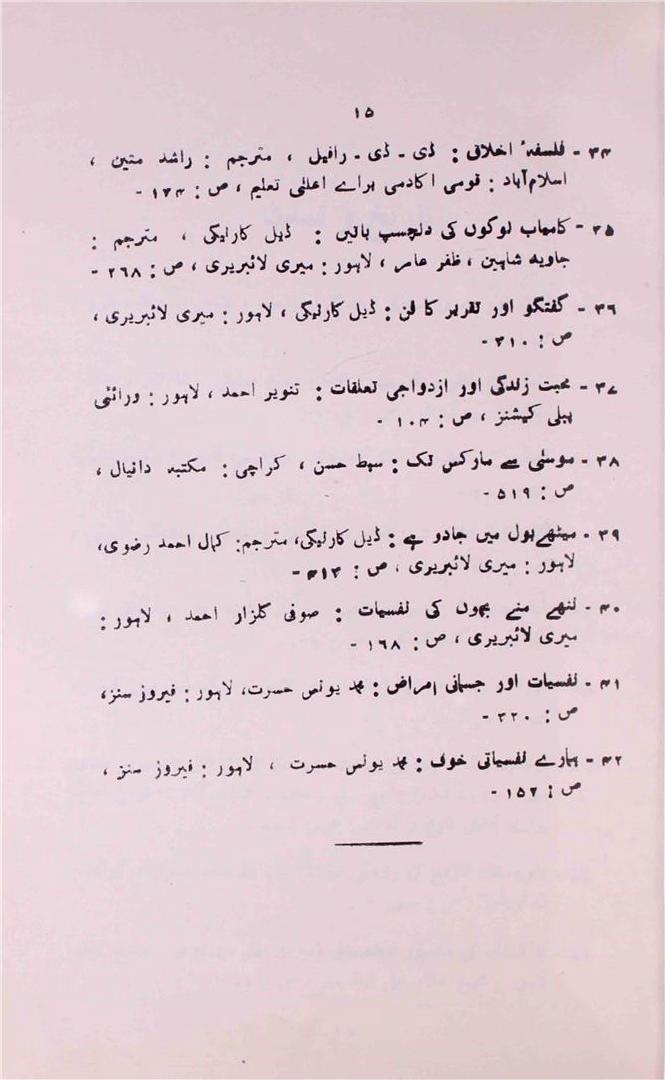 ۱۵
۳۴ - فلسفۂ اخلاق : ڈی - ڈی - رافیل ، مترجم : راشد متین ،
اسلام آباد : قومی اکادمی براے اعلیٰ تعلیم ، ص : ۱۳۴ -
۳۵ - کامیاب لوگوں کی دلچسپ باتیں : ڈیل کارنیگی ، مترجم :
جاوید شاہین ، ظفر عامر ، لاہور : میری لائبریری ، ص : ۲۶۸ -
۳۶ - گفتگو اور تقریر کا فن : ڈیل کارنیگی ، لاہور : میری لائبریری ،
ص : ۳۱۰ -
۳۷ - محبت زندگی اور ازدواجی تعلقات : تنویر احمد ، لاہور : ورائٹی
پبلی کیشنز ، ص : ۱۰۴ -
۳۸ - موسیٰ سے مارکس تک : سبط حسن ، کراچی : مکتبہ دانیال ،
ص : ۵۱۹ -
۳۹ - میٹھے بول میں جادو ہے : ڈیل کارنیگی، مترجم : کمال احمد رضوی،
لاہور : میری لائبریری ، ص : -
۴۰ - ننھے منے بچوں کی نفسیات : صوفی گلزار احمد ، لاہور :
میری لائبریری ، ص : ۱۶۸ -
۴۱ - نفسیات اور جسمانی امراض : محمد یونس حسرت، لاہور : فیروز سنز،
ص : ۳۲۰ -
۴۲ - ہمارے نفسیاتی خوف : محمد یونس حسرت ، لاہور : فیروز سنز ،
ص : ۱۵۲ -